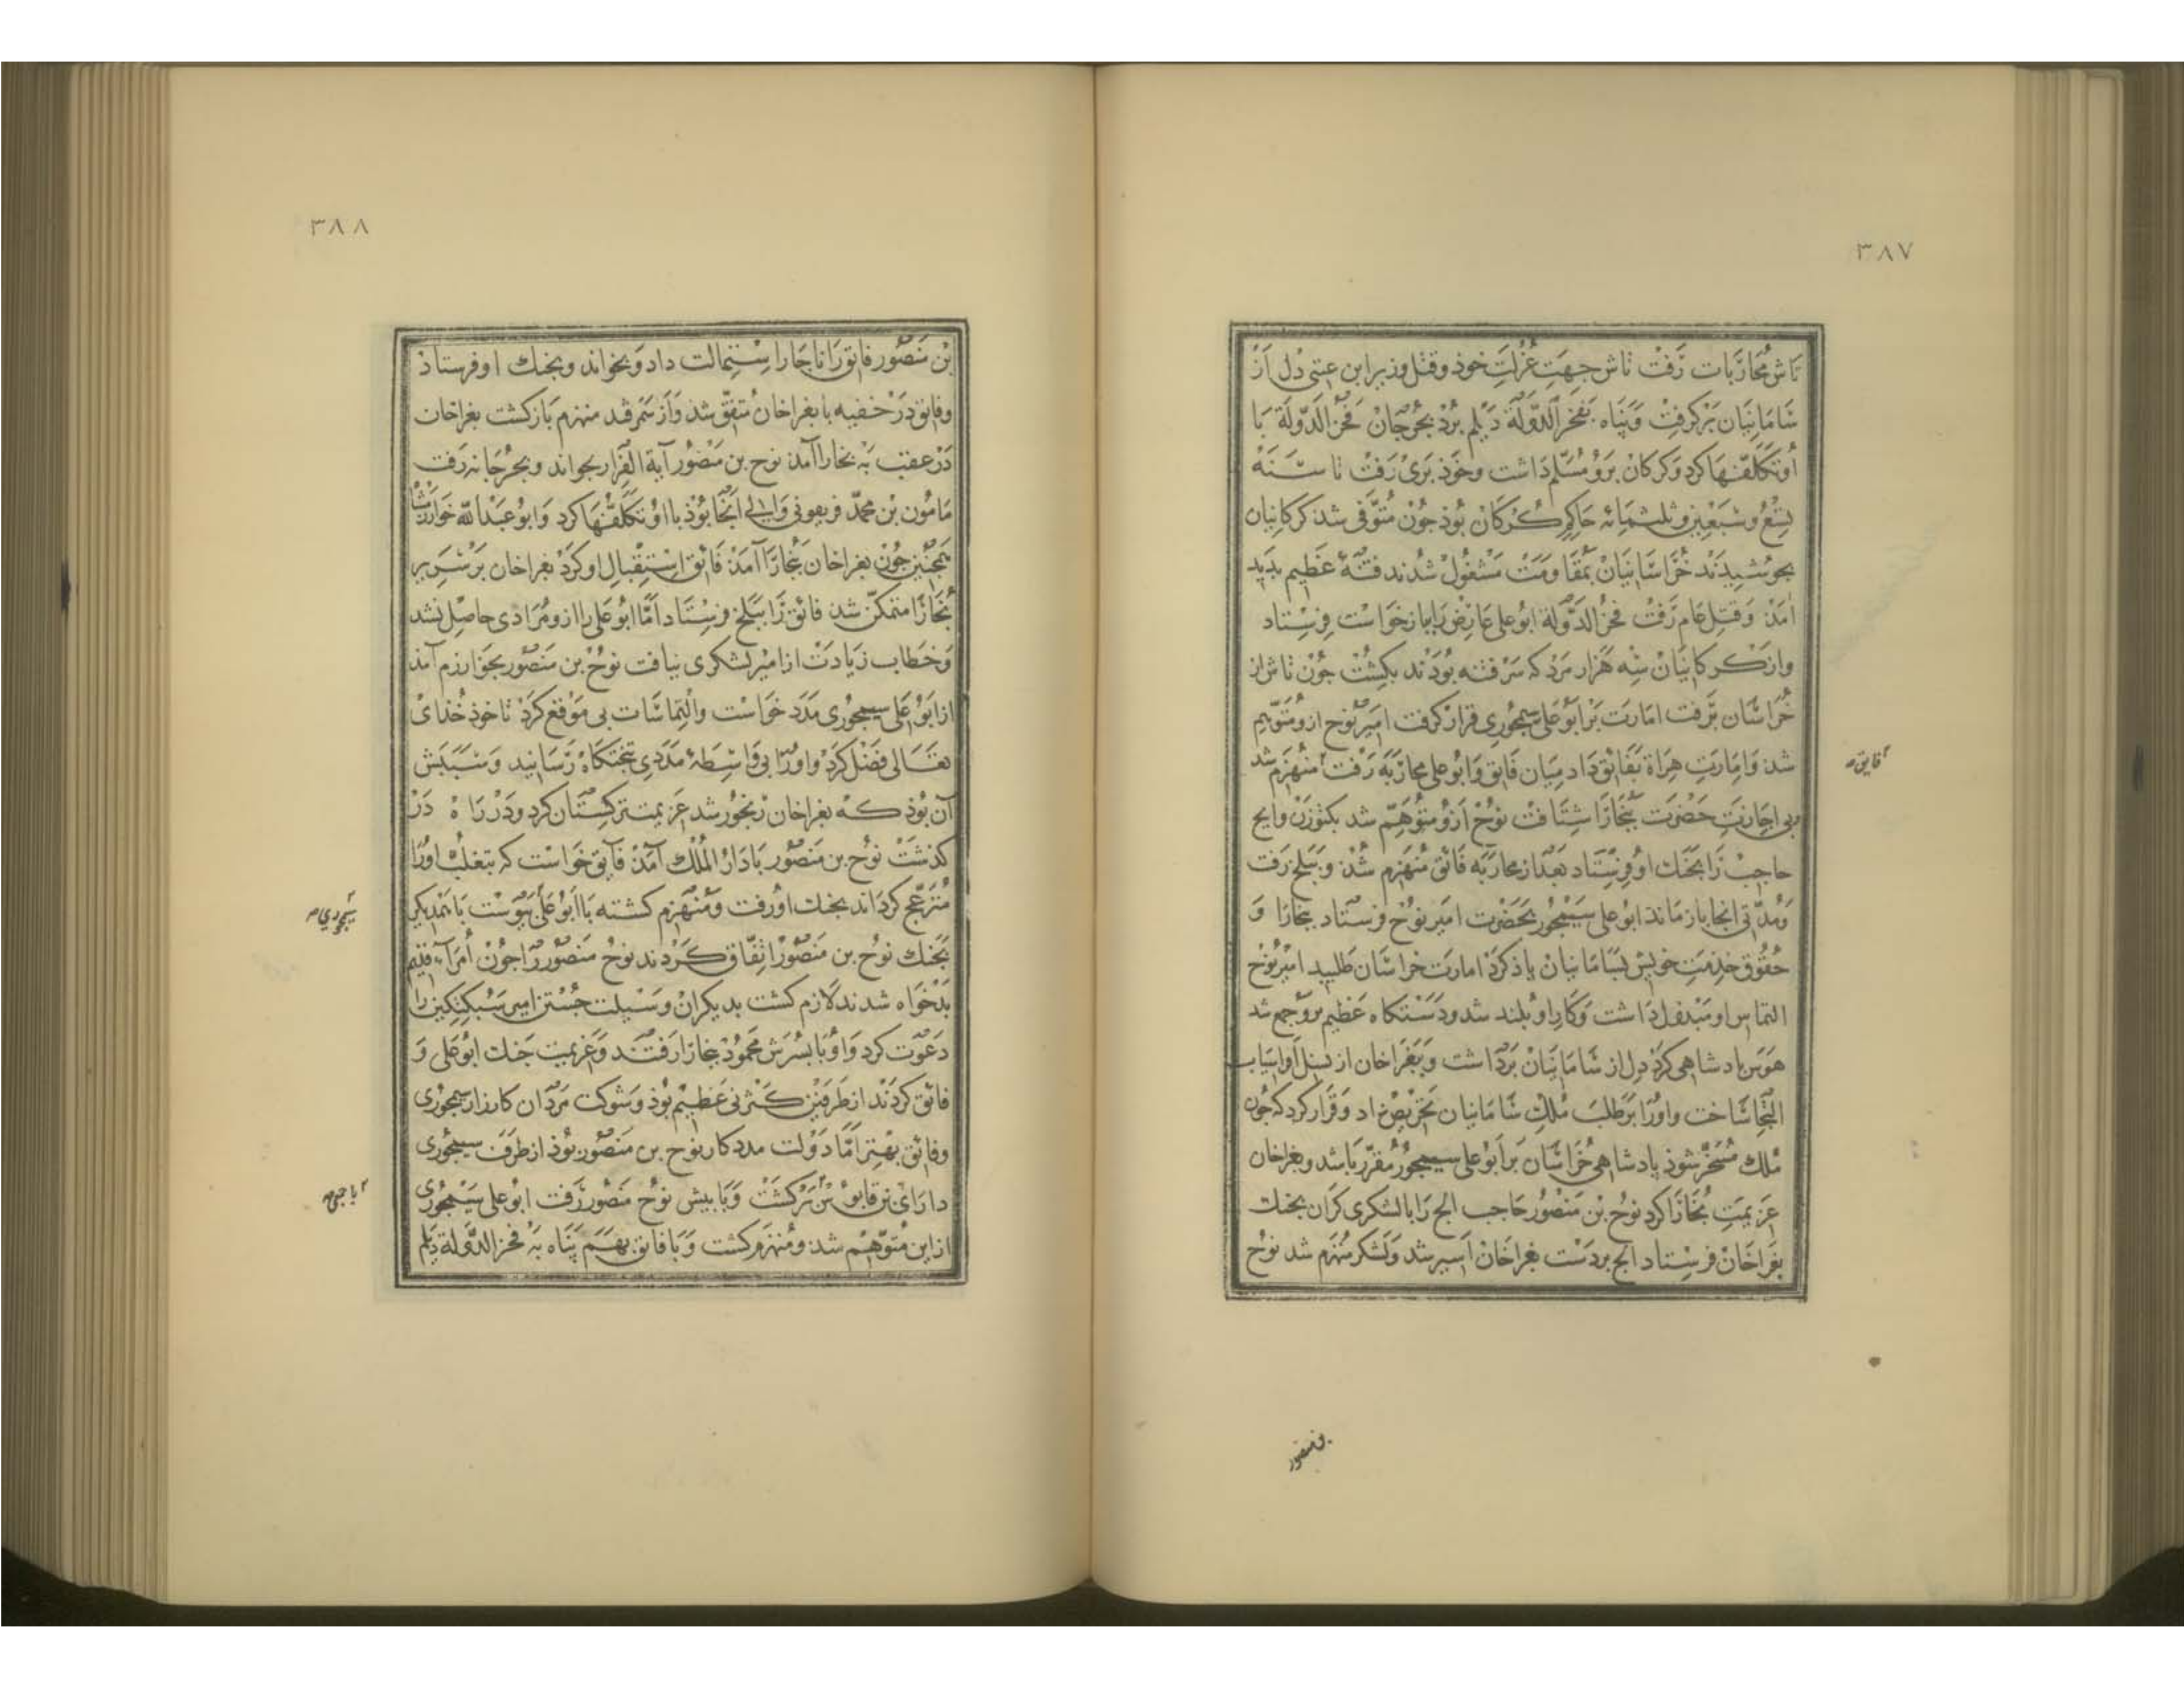 ٣٨٧
تاش محاربات رفت تاش جهت عزلت خوذ و قتل وزیر ابن عتبی دل از
سامانیان برگرفت و پناه بفخر الدولة دیلم برد بجرجان فخر الدولة با
او تکلفها کرد و کرکان برو مسلم داشت و خوذ بری رفت تا سنه
تسع و سبعین و ثلثمائه حاکم کرکان بوذ جون متوفی شد کرکانیان
بجوشیدند خراسانیان بمقاومت مشغول شدند فتنهٔ عظیم بدید
امذ و قتل عام رفت فخر الدولة ابوعلی عارض را بازخواست فرستاد
و از کرکانیان سه هزار مرد که سر فتنه بودند بکشت جون تاش از
خراسان برفت امارت بر ابوعلی سیمجوری قرار کرفت امیر نوح ازو متوهم
شد و امارت هراة بفائق داد میان فایق و ابوعلی محاربه رفت منهزم شد
فایق
بی اجازت حضرت ببخارا شتافت نوح ازو متوهم شد بکتوزن و ایج
حاجب را بجنك او فرستاد بعد از محاربه فائق منهزم شد و ببلخ رفت
و مدتی انجا باز ماند ابوعلی سیمجور بحضرت امیر نوح فرستاد ببخارا و
حقوق خدمت خویش بسامانیان یاذ کرد امارت خراسان طلبید امیر نوح
التماس او مبذول داشت و کار او بلند شد و دستکاه عظیم برو جمع شد
هوس بادشاهی کرد دل از سامانیان برداشت و ببغراخان از نسل افراسیاب
التجا ساخت و اورا بر طلب ملك سامانیان تحریص داد و قرار کرد که جون
ملك مسخر شوذ بادشاهی خراسان بر ابوعلی سیمجور مقرر باشد و بغراخان
عزیمت بخارا کرد نوح بن منصور حاجب ایج را با لشکری کران بجنك
بغراخان فرستاد ایج بر دست بغراخان اسیر شد و لشکر منهزم شد نوح
بن منصور
٣٨٨
بن منصور فائق را ناجار استمالت داد و بخواند و بجنك او فرستاد
و فائق در خفیه با بغراخان متفق شد و از سمرقند منهزم بازکشت بغراخان
در عقب به بخارا آمد نوح بن منصور آیة الفرار بخواند و بجرجانه رفت
مامون بن محمد فریغونی والی آنجا بوذ با او تکلفها کرد و ابو عبد الله خوارزمشاه
همجنین جون بغراخان ببخارا آمد فائق استقبال او کرد بغراخان بر سریر
بخارا متمکن شد فائق را ببلخ فرستاد اما ابوعلی را ازو مرادی حاصل نشد
و خطاب زیادت از امیر لشکری نیافت نوح بن منصور بخوارزم آمد
از ابوعلی سیمجوری مدد خواست و التماسات بی موقع کرد تا خوذ خدای
تعالی فضل کرد و اورا بی واسطهٔ مددی بتختکاه رسانید و سببش
آن بوذ که بغراخان رنجور شد عزیمت ترکستان کرد و در راه در
کذشت نوح بن منصور با دار الملك آمد فائق خواست که بتغلب اورا
منزعج کرداند بجنك او رفت و منهزم کشته با ابوعلی بیوست با همدیکر
سیمجوری
بجنك نوح بن منصور اتفاق کردند نوح منصور را جون أمراء قدیم
بدخواه شدند لازم کشت بدیکران وسیلت جستن امیر سبکتکین را
دعوت کرد و او با بسرش محمود ببخارا رفتند و عزیمت جنك ابوعلی و
فائق کردند از طرفین کثرتی عظیم بوذ و شوکت مردان کارزار سیمجوری
و فائق بهتر اما دولت مددکار نوح بن منصور بوذ از طرف سیمجوری
دارای بن قابوس برکشت و با بیش نوح منصور رفت ابوعلی سیمجوری
از این متوهم شد و منهزم کشت و با فائق بهم پناه به فخر الدولة دیلم